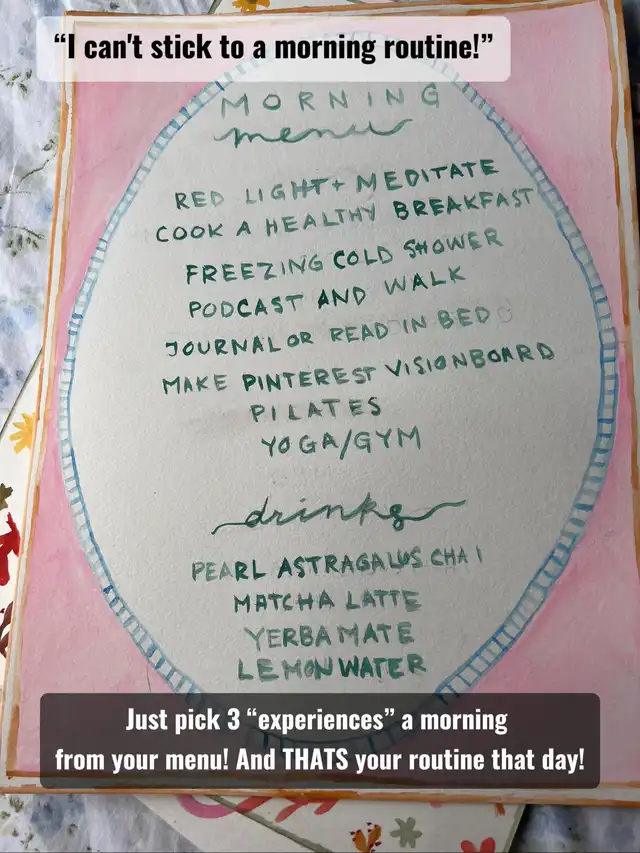 “I can't stick to a morning routine!”
MORNING
menu
RED LIGHT + MEDITATE
COOK A HEALTHY BREAKFAST
FREEZING COLD SHOWER
PODCAST AND WALK
JOURNAL OR READ IN BED
MAKE PINTEREST VISIONBOARD
PILATES
YOGA/GYM
drinks
PEARL ASTRAGALUS CHAI
MATCHA LATTE
YERBA MATE
LEMON WATER
Just pick 3 “experiences” a morning
from your menu! And THATS your routine that day!